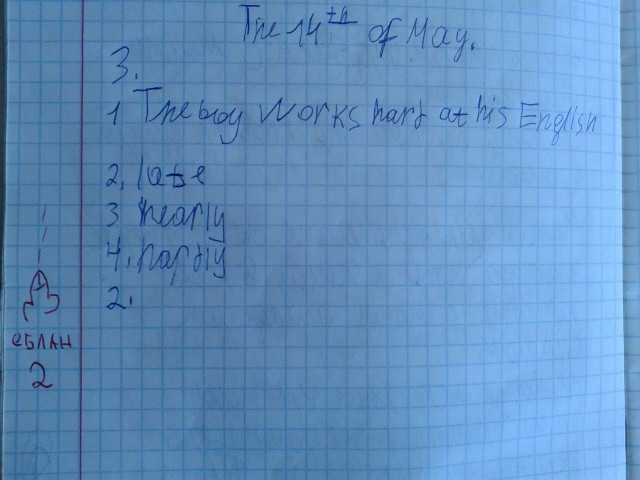 The 14th of May.
3.
1 The boy works hard at his English
2. late
3 nearly
4. hardly
2.
еблан
2